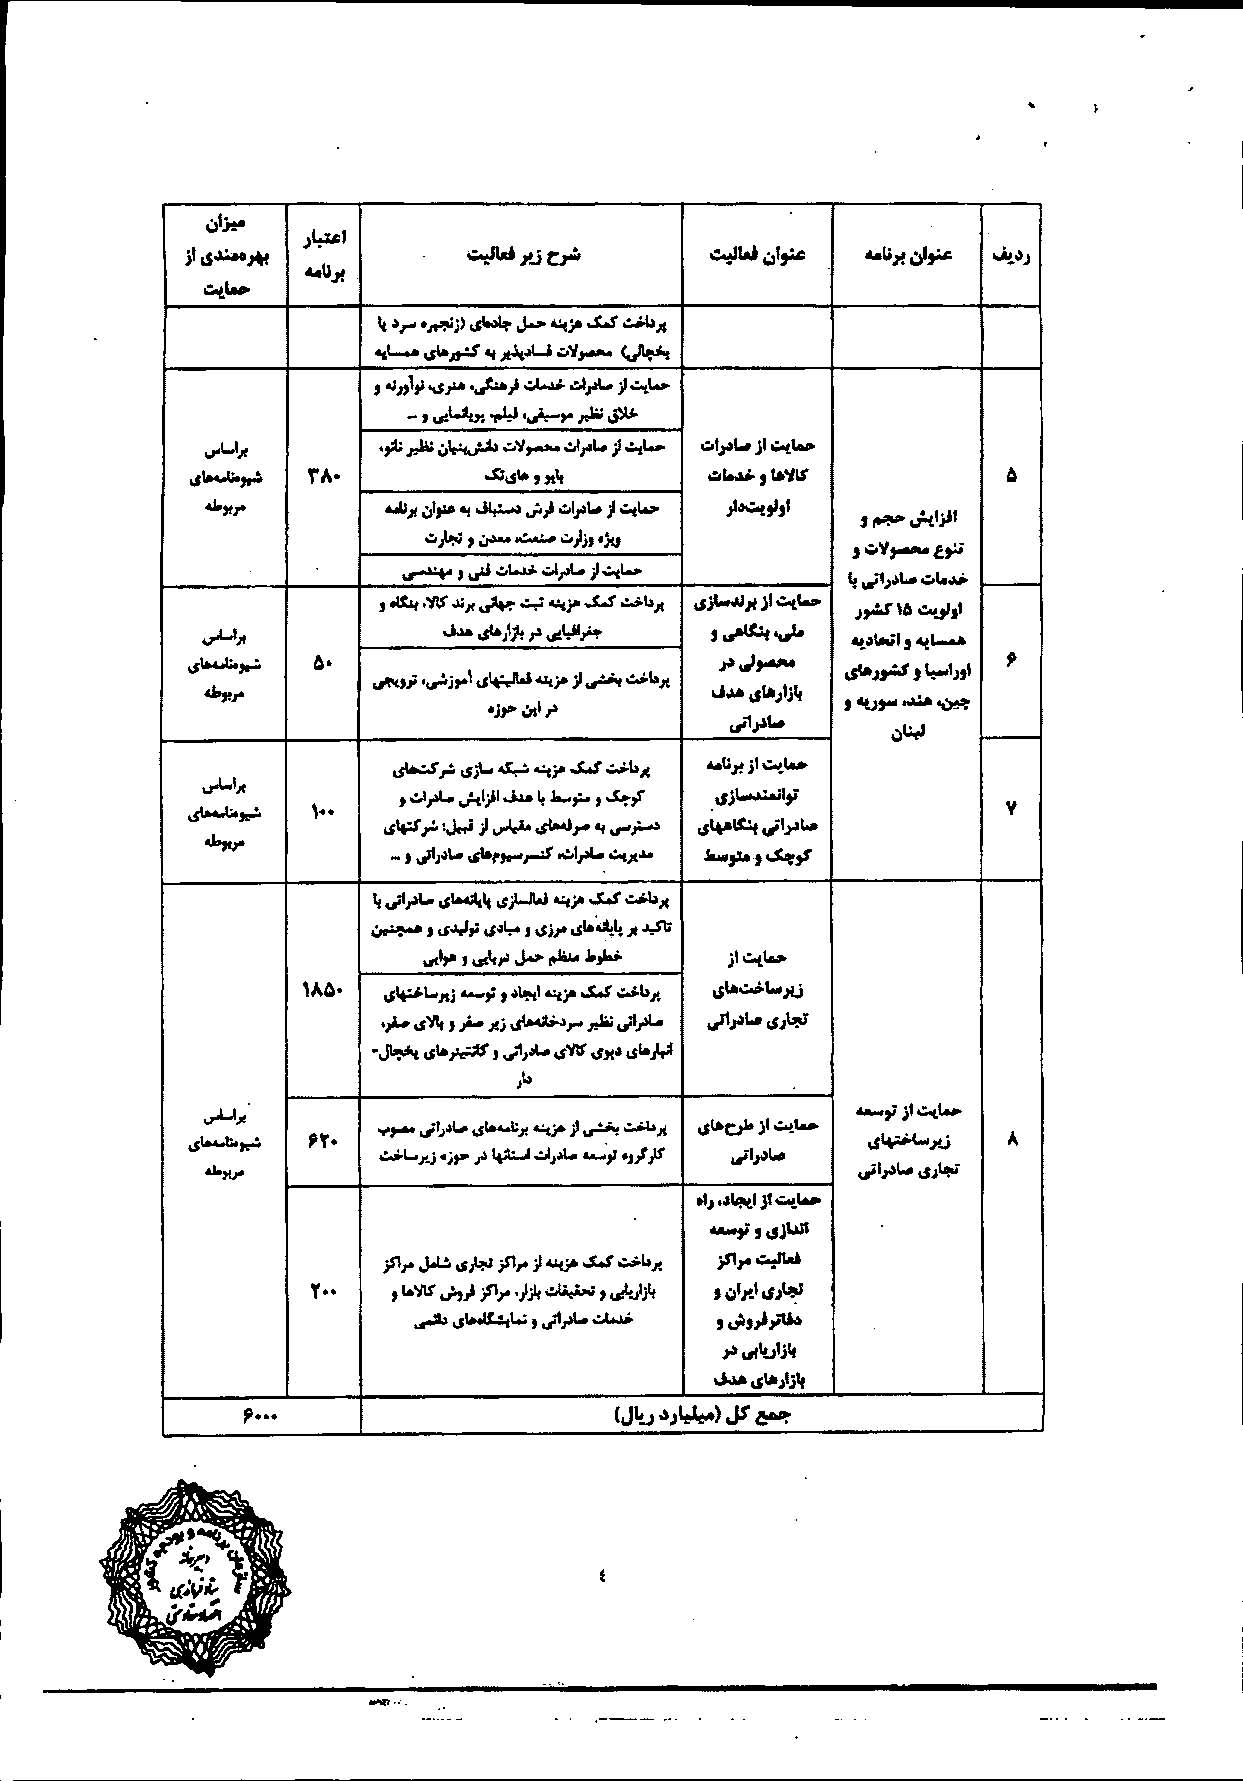 ردیف
عنوان برنامه
عنوان فعالیت
شرح زیر فعالیت
اعتبار
برنامه
میزان
بهره‌مندی از
حمایت
پرداخت کمک هزینه حمل جاده‌ای (زنجیره سرد یا
یخچالی) محصولات فسادپذیر به کشورهای همسایه
۵
افزایش حجم و
تنوع محصولات و
خدمات صادراتی با
اولویت ۱۵ کشور
همسایه و اتحادیه
اوراسیا و کشورهای
چین، هند، سوریه و
لبنان
حمایت از صادرات
کالاها و خدمات
اولویت‌دار
حمایت از صادرات خدمات فرهنگی، هنری، نوآورنه و
خلاق نظیر موسیقی، فیلم، پویانمایی و ...
حمایت از صادرات محصولات دانش‌بنیان نظیر نانو،
بایو و های‌تک
حمایت از صادرات فرش دستباف به عنوان برنامه
ویژه وزارت صنعت، معدن و تجارت
حمایت از صادرات خدمات فنی و مهندسی
۳۸۰
براساس
شیوه‌نامه‌های
مربوطه
۶
حمایت از برندسازی
ملی، بنگاهی و
محصولی در
بازارهای هدف
صادراتی
پرداخت کمک هزینه ثبت جهانی برند کالا، بنگاه و
جغرافیایی در بازارهای هدف
پرداخت بخشی از هزینه فعالیتهای آموزشی، ترویجی
در این حوزه
۵۰
براساس
شیوه‌نامه‌های
مربوطه
۷
حمایت از برنامه
توانمندسازی
صادراتی بنگاههای
کوچک و متوسط
پرداخت کمک هزینه شبکه سازی شرکت‌های
کوچک و متوسط با هدف افزایش صادرات و
دسترسی به صرفه‌های مقیاس از قبیل: شرکتهای
مدیریت صادرات، کنسرسیوم‌های صادراتی و ...
۱۰۰
براساس
شیوه‌نامه‌های
مربوطه
۸
حمایت از توسعه
زیرساختهای
تجاری صادراتی
حمایت از
زیرساخت‌های
تجاری صادراتی
پرداخت کمک هزینه فعالسازی پایانه‌های صادراتی با
تاکید بر پایانه‌های مرزی و مبادی تولیدی و همچنین
خطوط منظم حمل دریایی و هوایی
پرداخت کمک هزینه ایجاد و توسعه زیرساختهای
صادراتی نظیر سردخانه‌های زیر صفر و بالای صفر،
انبارهای دپوی کالای صادراتی و کانتینرهای یخچال-
دار
۱۸۵۰
براساس
شیوه‌نامه‌های
مربوطه
حمایت از طرح‌های
صادراتی
پرداخت بخشی از هزینه برنامه‌های صادراتی مصوب
کارگروه توسعه صادرات استانها در حوزه زیرساخت
۶۲۰
حمایت از ایجاد، راه
اندازی و توسعه
فعالیت مراکز
تجاری ایران و
دفاتر فروش و
بازاریابی در
بازارهای هدف
پرداخت کمک هزینه از مراکز تجاری شامل مراکز
بازاریابی و تحقیقات بازار، مراکز فروش کالاها و
خدمات صادراتی و نمایشگاه‌های دائمی
۲۰۰
جمع کل (میلیارد ریال)
۶۰۰۰
سازمان برنامه و بودجه کشور
دبیرخانه
ستاد فرماندهی
اقتصاد مقاومتی
٤